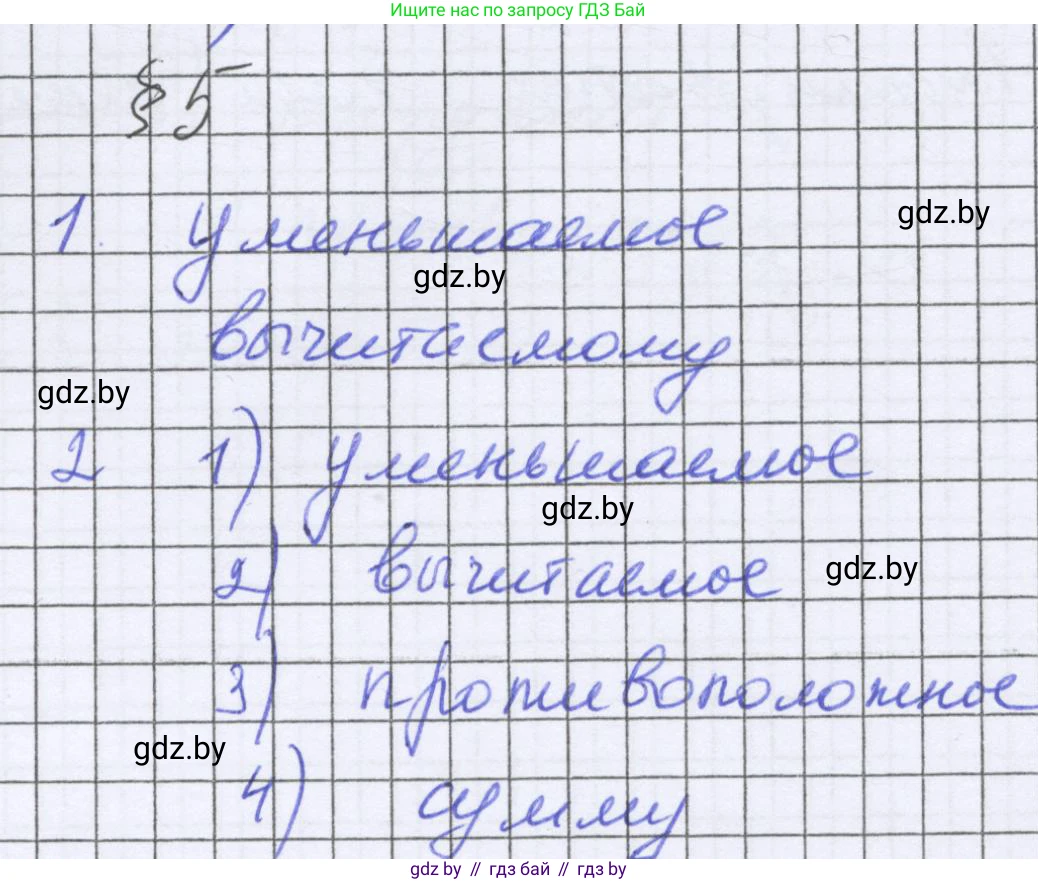 Ищите нас по запросу ГДЗ Бай
§ 5
1. Уменьшаемое
gdz.by
gdz.by
вычитаемому
gdz.by
2 1) уменьшаемое
gdz.by
2) вычитаемое
gdz.by
3) противоположное
gdz.by
4) сумму
gdz.by // гдз бай // гдз by